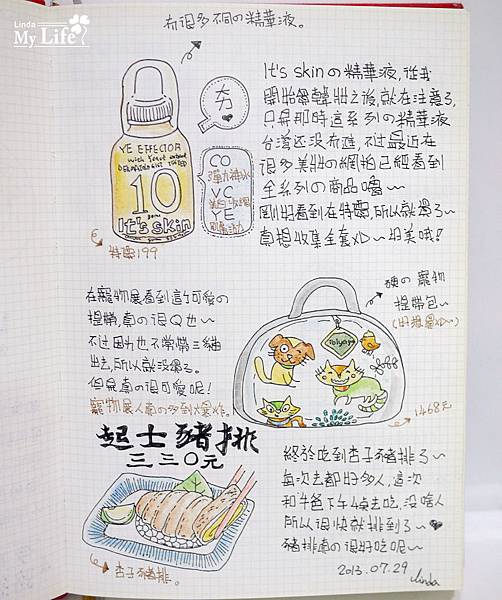 Linda
My Life
有很多不同の精華液。
It's skinの精華液,從我
開始
就在注意了,
只是那時這系列の精華液
台灣還沒有進,不過最近在
很多美妝の網拍已經看到
全系列の商品囉~
剛好看到在特價,所以就買了~
真想收集全套XD~好美哦!
夯
YE EFFECTOR
with Yeast extract
10
It's skin
CO
VC
YE
特價199
在寵物展看到這個可愛の
提籃,真の很Q也~
不過因為也不常帶三貓
出去,所以就沒買了。
但是真の很可愛呢!
寵物展人真の多到爆炸。
硬の寵物
提籃包~
(好想買XD~)
1468元
起士豬排
三三〇元
杏子豬排。
終於吃到杏子豬排了~
每次去都好多人,這次
和牛爸下午4點去吃,沒啥人
所以很快就排到了~
豬排真の很好吃呢~
2013.07.29
Linda